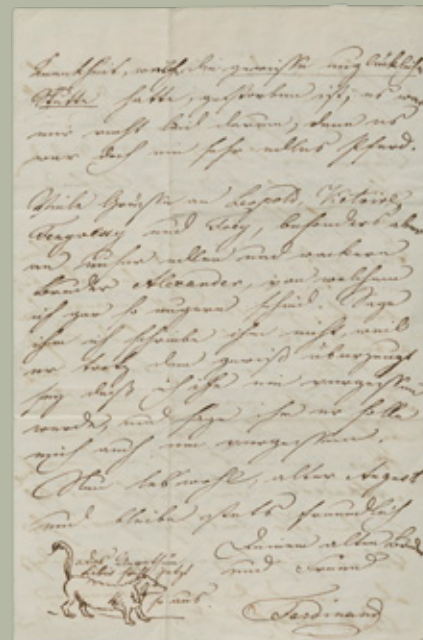 Krankheit, welche die gewisse unglückliche
Stute hatte, gestorben ist; es war
mir recht leid darum, denn es
war doch ein sehr edles Pferd.
Viele Grüsse an Leopold,
und besonders aber
an unsern edlen und wackern
Bruder Alexander, von welchem
ich gar so ungern schied. Sage
ihm ich schreibe ihm nicht, weil
er trotz dem gewiß überzeugt
sey daß ich ihn nie vergessen
werde, und sage ihm er solle
mich auch nie vergessen.
Nun lebewohl, alter August
und bleibe stets freundlich
Deinem alten
und Freund
Ferdinand
so aus.